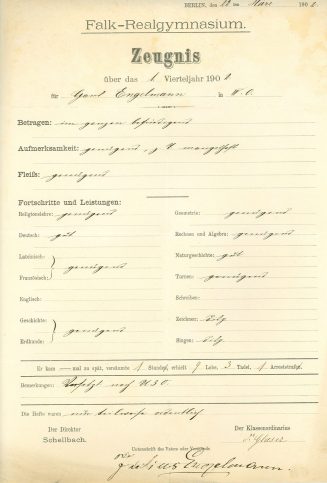 BERLIN, den 28 ten März 1902.
Falk-Realgymnasium.
Zeugnis
über das 1. Vierteljahr 1902
für Engelmann in
Betragen: im ganzen befriedigend
Aufmerksamkeit: genügend, z. T. mangelhaft
Fleiß: genügend
Fortschritte und Leistungen:
Religionslehre: genügend
Deutsch: gut
Lateinisch: Französisch: genügend
Englisch:
Geschichte: Erdkunde: genügend
Geometrie: genügend
Rechnen und Algebra: genügend
Naturgeschichte: gut
Turnen: genügend
Schreiben:
Zeichnen:
Singen:
Er kam — mal zu spät, versäumte Stundeⁿ, erhielt Lobe, 3 Tadel, 1 Arreststrafeⁿ.
Bemerkungen: Versetzt nach
Die Hefte waren ordentlich
Der Direktor
Schellbach.
Der Klassenordinarius
Unterschrift des Vaters oder Vormunds.
Engelmann.